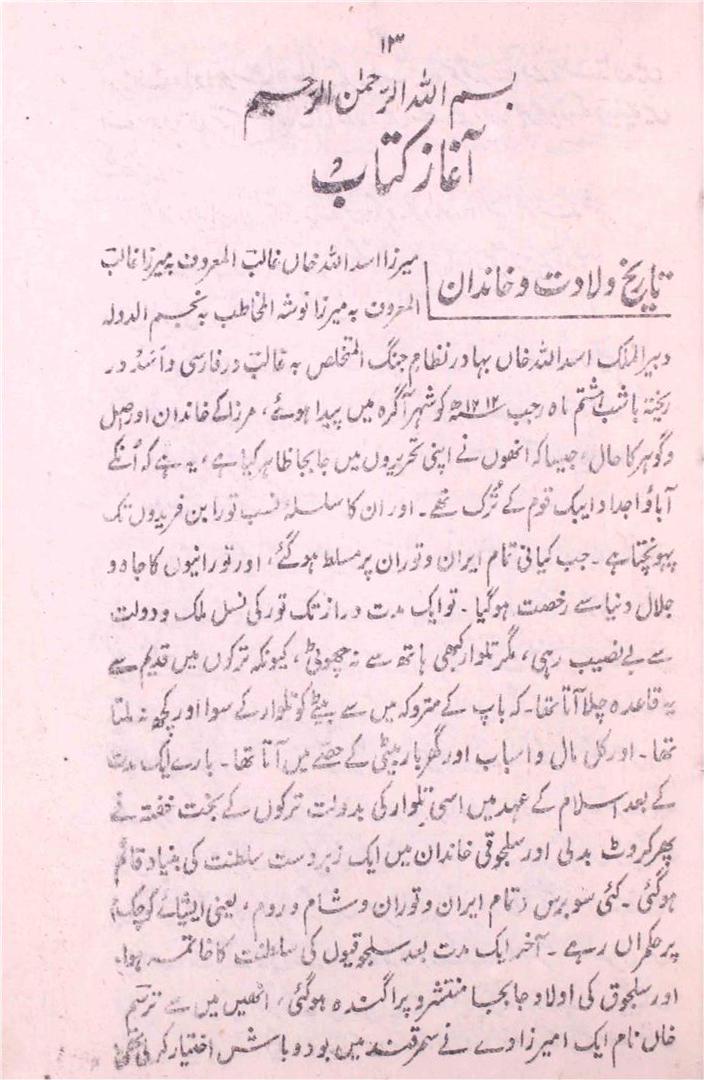 ۱۳
بسم اللہ الرحمٰن الرحیم
آغاز کتاب
تاریخ ولادت و خاندان
میرزا اسد اللہ خاں غالب المعروف بہ میرزا غالب
المعروف بہ میرزا نوشہ المخاطب بہ نجم الدولہ
دبیر الملک اسد اللہ خاں بہادر نظام جنگ المتخلص بہ غالب در فارسی و اسد در
ریختہ با شب ہشتم ماہ رجب ۱۲۱۲ھ کو شہر آگرہ میں پیدا ہوئے، مرزا کے خاندان اور اصل
و گوہر کا حال، جیسا کہ انھوں نے اپنی تحریروں میں جابجا ظاہر کیا ہے، یہ ہے کہ اُنکے
آباؤ اجداد ایبک قوم کے تُرک تھے۔ اور ان کا سلسلۂ نسب تور ابن فریدوں تک
پہونچتا ہے۔ جب کیانی تمام ایران و توران پر مسلط ہوگئے، اور تورانیوں کا جاہ و
جلال دنیا سے رخصت ہوگیا۔ تو ایک مدت دراز تک تور کی نسل ملک و دولت
سے بے نصیب رہی، مگر تلوار کبھی ہاتھ سے نہ چھوٹی، کیونکہ ترکوں میں قدیم سے
یہ قاعدہ چلا آتا تھا۔ کہ باپ کے متروکہ میں سے بیٹے کو تلوار کے سوا اور کچھ نہ ملتا
تھا۔ اور کل مال و اسباب اور گھر بار بیٹی کے حصّے میں آتا تھا۔ بارے ایک مدت
کے بعد اسلام کے عہد میں اسی تلوار کی بدولت ترکوں کے بخت خفتہ نے
پھر کروٹ بدلی اور سلجوقی خاندان میں ایک زبردست سلطنت کی بنیاد قائم
ہوگئی۔ کئی سو برس تمام ایران و توران و شام و روم، یعنی ایشائے کوچک،
پر حکمراں رہے۔ آخر ایک مدت بعد سلجوقیوں کی سلطنت کا خاتمہ ہوا۔
اور سلجوق کی اولاد جابجا منتشر و پراگندہ ہوگئی، انھیں میں سے ترسم
خاں نام ایک امیرزادے نے سمرقند میں بود و باش اختیار کر لی تھی